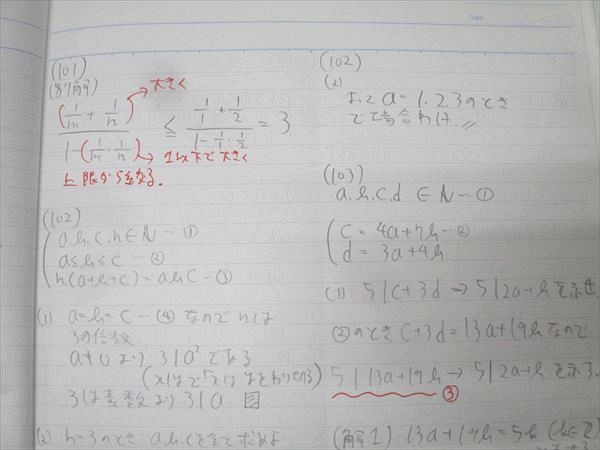 (101)
(別解)
(1/m + 1/n) → 大きく
1-(1/m · 1/n) → 1以下で大きく
≦ (1/1 + 1/2) / (1 - 1/1 · 1/2) = 3
上限から絞る.
(102)
a.b.c.n ∈ N - ①
a≤b≤c - ②
n(a+b+c) = abc - ③
(1) a=b=c - ④ なので nは
3の倍数
a≠0 より 3|a² である
3は素数より 3|a
(2) n=3のとき a.b.cを全て求めよ
(102)
(2)
よって a=1.2.3のとき
で場合わけ.
(103)
a.b.c.d ∈ N - ①
c = 4a+7b - ②
d = 3a+4b
(1) 5|c+3d → 5|2a+bを示せ.
②のとき c+3d = 13a+19bなので
5|13a+19b → 5|2a+bを示す.
③
(解1) 13a+19b=5k (k∈Z)